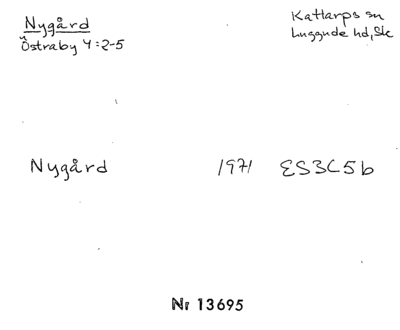 Nygård
Östraby 4:2-5
Kattarps sn
Luggude hd, Sk
Nygård 1971 ES3C5b
Nr 13695